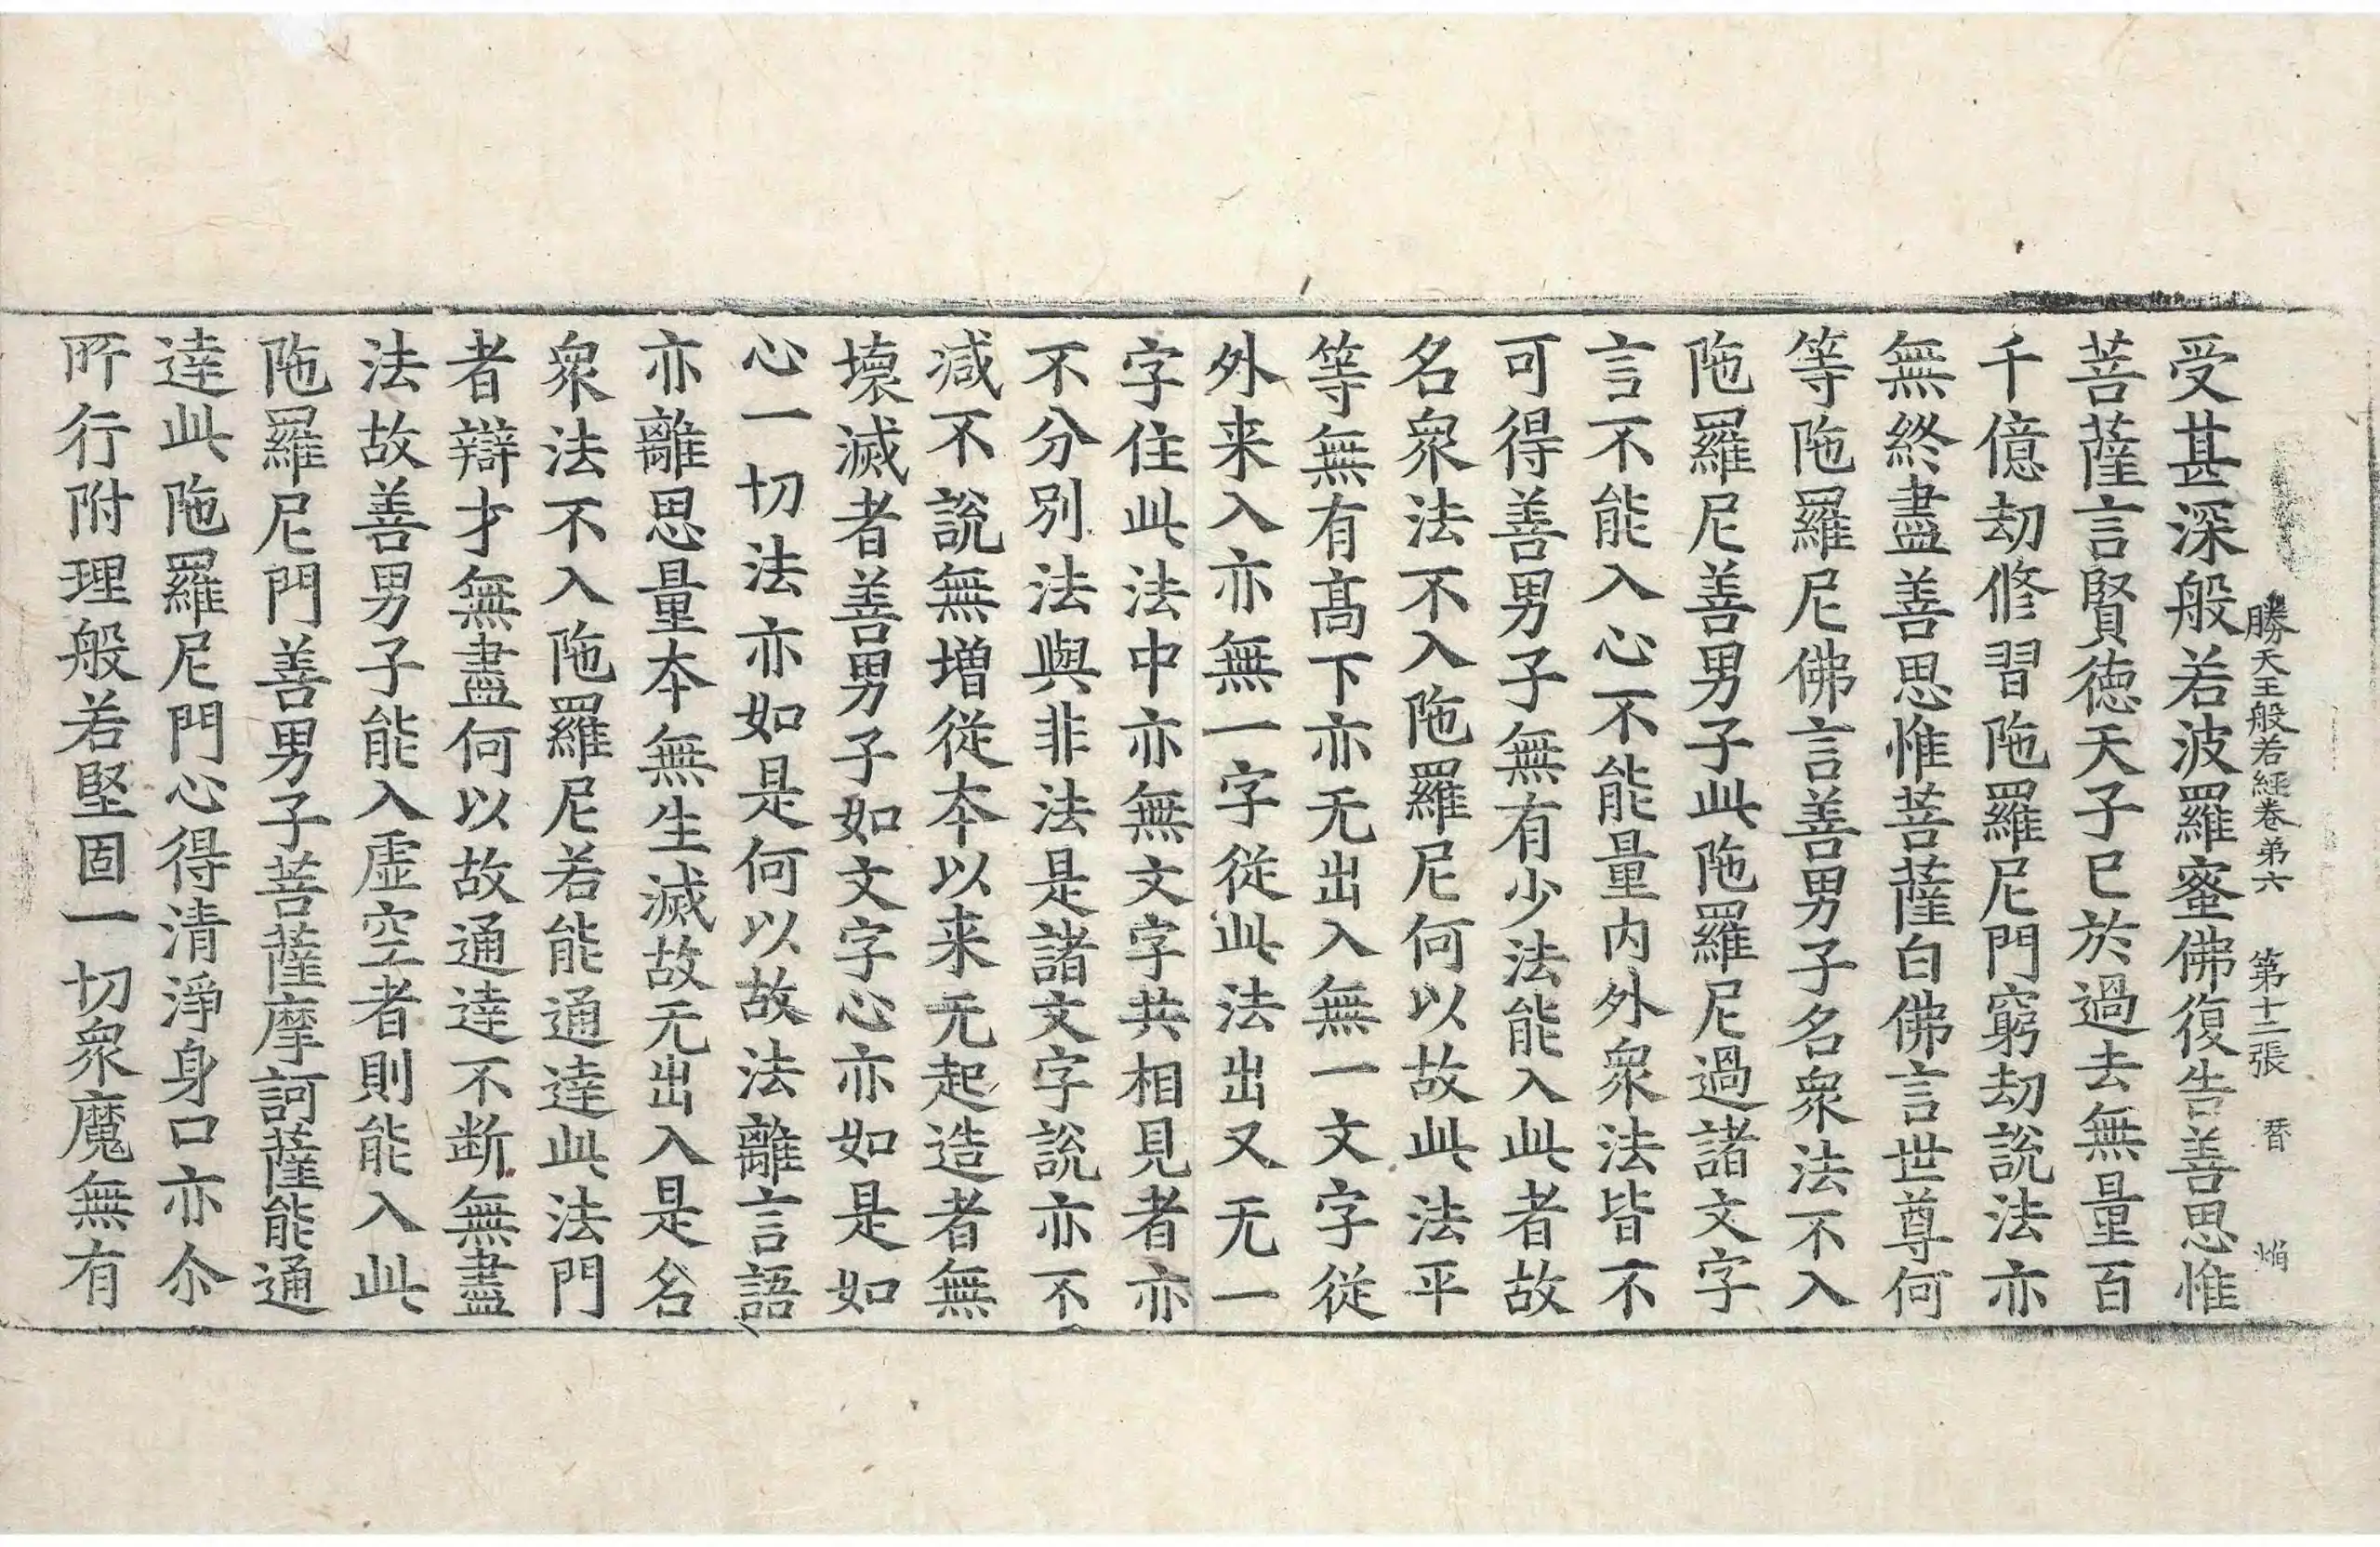 勝天王般若經卷弟六 第十二張 㫪 焰
受甚深般若波羅蜜佛復告善思惟
菩薩言賢德天子已於過去無量百
千億劫修習陁羅尼門窮劫說法亦
無終盡善思惟菩薩白佛言世尊何
等陁羅尼佛言善男子名衆法不入
陁羅尼善男子此陁羅尼過諸文字
言不能入心不能量内外衆法皆不
可得善男子無有少法能入此者故
名衆法不入陁羅尼何以故此法平
等無有髙下亦无出入無一文字從
外来入亦無一字從此法出又无一
字住此法中亦無文字共相見者亦
不分別法與非法是諸文字說亦不
减不說無增從夲以来无起造者無
壞滅者善男子如文字心亦如是如
心一切法亦如是何以故法離言語
亦離思量夲無生滅故无出入是名
衆法不入陁羅尼若能通達此法門
者辯才無盡何以故通達不断無盡
法故善男子能入虛空者則能入此
陁羅尼門善男子菩薩摩訶薩能通
達此陁羅尼門心得清淨身口亦尒
所行附理般若堅固一切衆魔無有